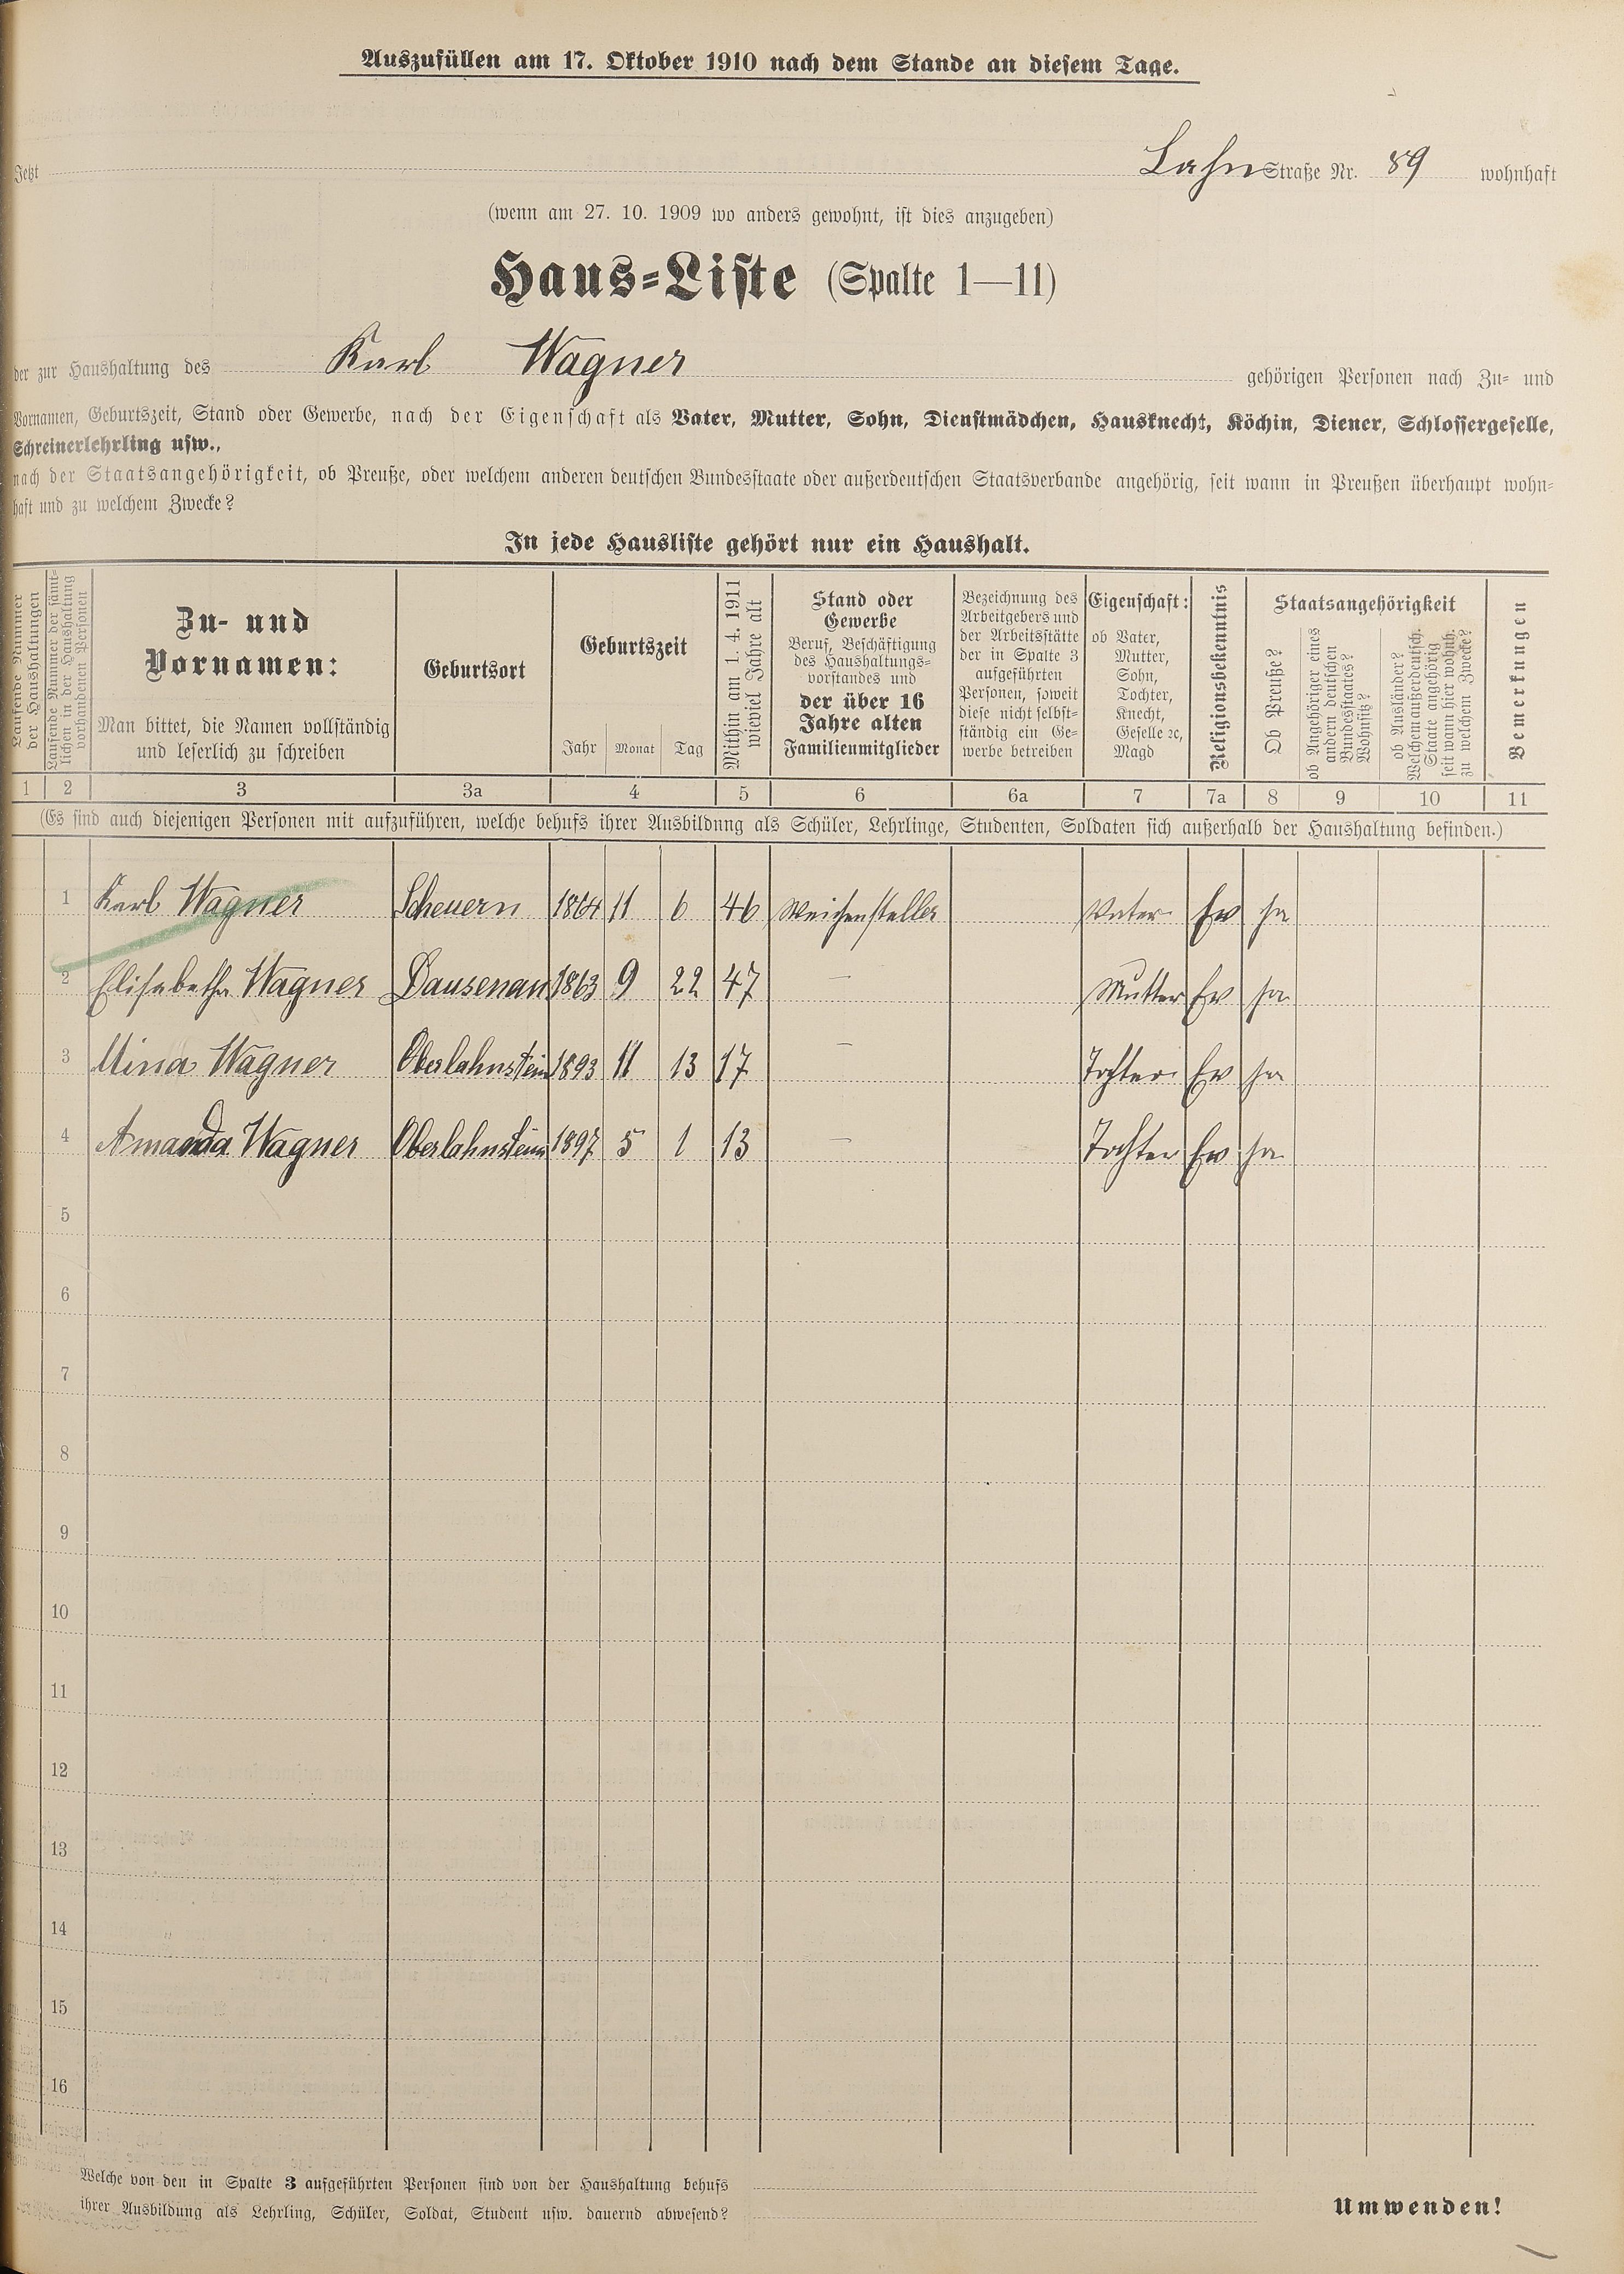 Auszufüllen am 17. Oktober 1910 nach dem Stande an diesem Tage.
Jetzt Lahn Straße Nr. 89 wohnhaft
(wenn am 27. 10. 1909 wo anders gewohnt, ist dies anzugeben)
Haus-Liste (Spalte 1—11)
der zur Haushaltung des Karl Wagner gehörigen Personen nach Zu- und
Vornamen, Geburtszeit, Stand oder Gewerbe, nach der Eigenschaft als Vater, Mutter, Sohn, Dienstmädchen, Hausknecht, Köchin, Diener, Schlossergeselle,
Schreinerlehrling usw.,
nach der Staatsangehörigkeit, ob Preuße, oder welchem anderen deutschen Bundesstaate oder außerdeutschen Staatsverbande angehörig, seit wann in Preußen überhaupt wohn-
haft und zu welchem Zwecke?
In jede Hausliste gehört nur ein Haushalt.
Laufende Nummer
der Haushaltungen
Laufende Nummer der sämt-
lichen in der Haushaltung
vorhandenen Personen
Zu- und
Vornamen:
Man bittet, die Namen vollständig
und leserlich zu schreiben
Geburtsort
Geburtszeit
Jahr Monat Tag
Mithin am 1. 4. 1911
wieviel Jahre alt
Stand oder
Gewerbe
Beruf, Beschäftigung
des Haushaltungs-
vorstandes und
der über 16
Jahre alten
Familienmitglieder
Bezeichnung des
Arbeitgebers und
der Arbeitsstätte
der in Spalte 3
aufgeführten
Personen, soweit
diese nicht selbst-
ständig ein Ge-
werbe betreiben
Eigenschaft:
ob Vater,
Mutter,
Sohn,
Tochter,
Knecht,
Geselle ꝛc,
Magd
Religionsbekenntnis
Staatsangehörigkeit
Ob Preuße?
ob Angehöriger eines
andern deutschen
Bundesstaates?
Wohnsitz?
ob Ausländer?
Welchem außerdeutsch.
Staate angehörig
seit wann hier wohnh.
zu welchem Zwecke?
Bemerkungen
1 2 3 3a 4 5 6 6a 7 7a 8 9 10 11
(Es sind auch diejenigen Personen mit aufzuführen, welche behufs ihrer Ausbildung als Schüler, Lehrlinge, Studenten, Soldaten sich außerhalb der Haushaltung befinden.)
1 Karl Wagner Scheuern 1864 11 6 46 Weichensteller Vater Ev ja
2 Elisabetha Wagner Dausenau 1863 9 22 47 — Mutter Ev ja
3 Mina Wagner Oberlahnstein 1893 11 13 17 — Tochter Ev ja
4 Amanda Wagner Oberlahnstein 1897 5 1 13 — Tochter Ev ja
5
6
7
8
9
10
11
12
13
14
15
16
Welche von den in Spalte 3 aufgeführten Personen sind von der Haushaltung behufs
ihrer Ausbildung als Lehrling, Schüler, Soldat, Student usw. dauernd abwesend?
Umwenden!